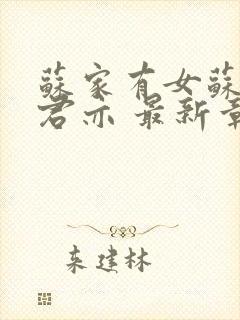 蘇家有女蘇
君亦 最新章
来建林